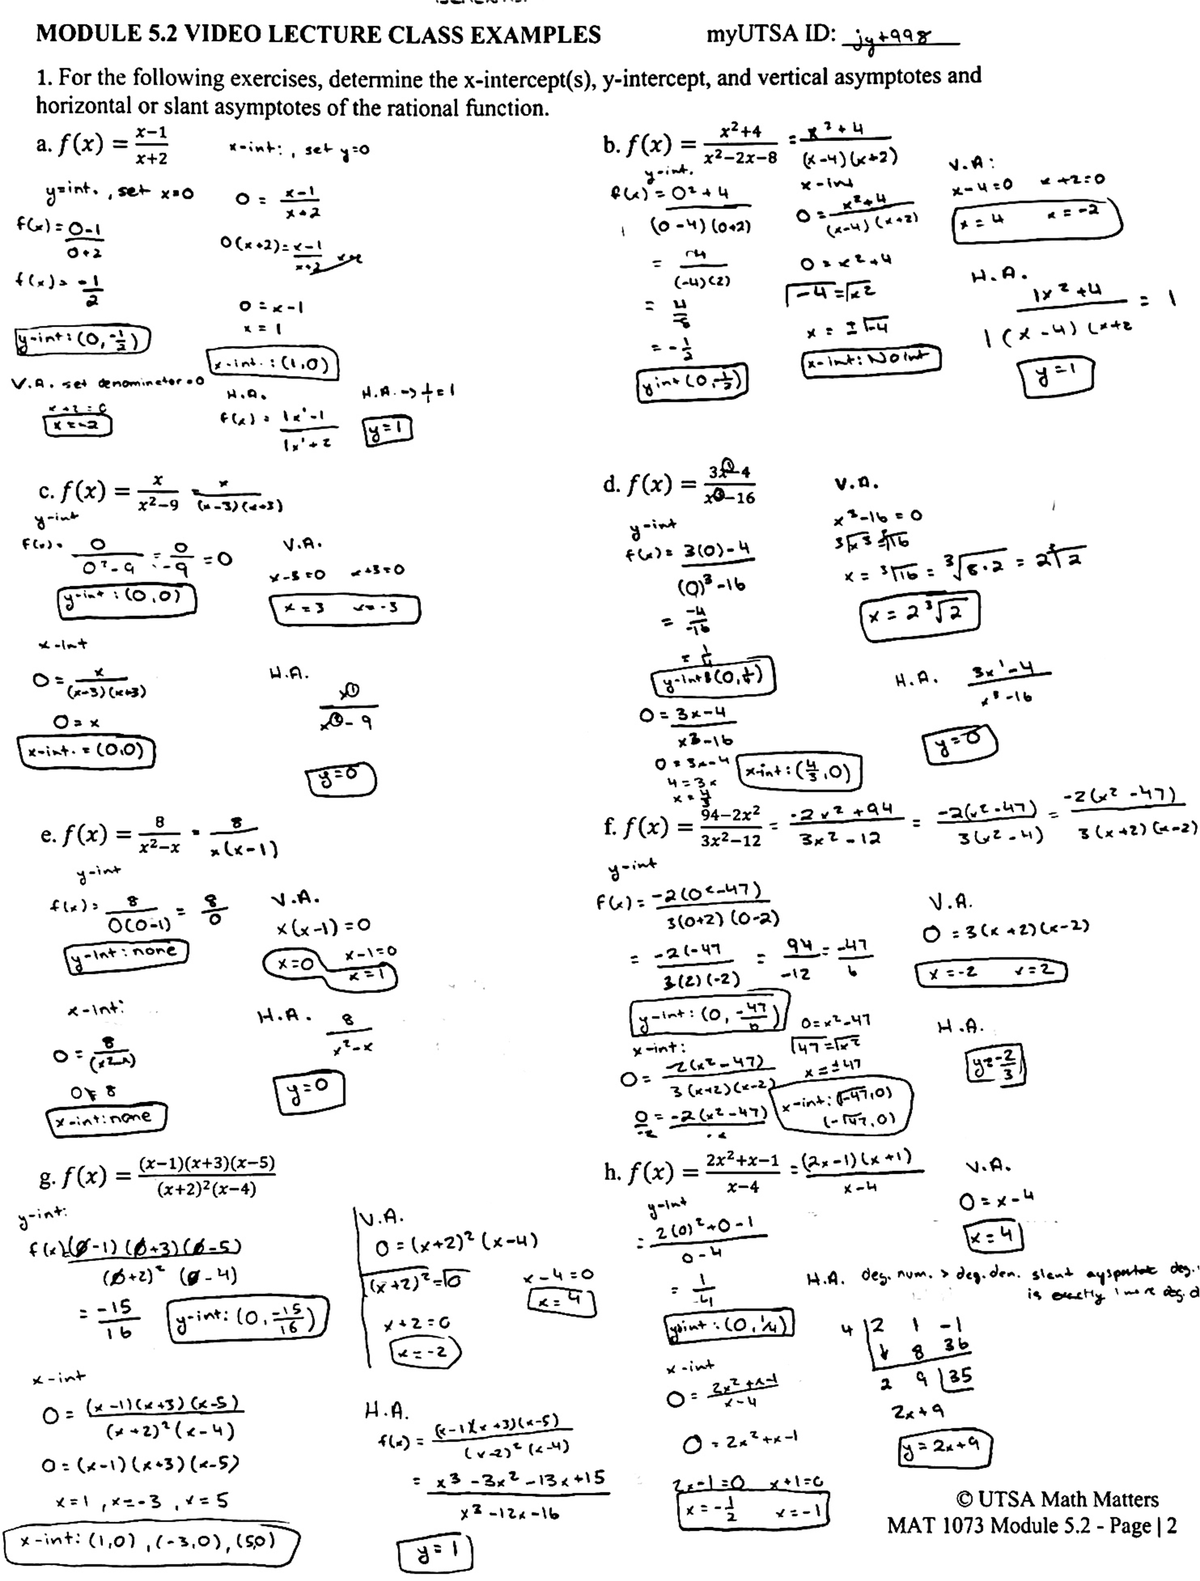 MODULE 5.2 VIDEO LECTURE CLASS EXAMPLES myUTSA ID: jyt998
1. For the following exercises, determine the x-intercept(s), y-intercept, and vertical asymptotes and
horizontal or slant asymptotes of the rational function.
a. f(x) = (x−1)/(x+2)
x-int: , set y=0
y=int. , set x=0
0 = (x-1)/(x+2)
f(x) = (0-1)/(0+2)
0(x+2) = (x-1)/(x+2)
f(x) = -1/2
0 = x-1
x = 1
y-int: (0, -1/2)
x-int. : (1,0)
V.A. set denominator = 0
x+2 = 0
x = -2
H.A.
f(x) = (1x¹-1)/(1x¹+2)
H.A. → 1/1 = 1
y=1
b. f(x) = (x²+4)/(x²−2x−8) = (x²+4)/((x-4)(x+2))
y-int.
f(x) = (0²+4)/((0-4)(0+2))
= 4/((-4)(2))
= -1/2
yint (0, -1/2)
x-int
0 = (x²+4)/((x-4)(x+2))
0 = x²+4
√-4 = √x²
x = ±√-4
x-int: No Int
V.A:
x-4=0 x+2=0
x = 4 x = -2
H.A.
(1x²+4)/(1(x-4)(x+2 = 1
y=1
c. f(x) = x/(x²−9) = x/((x-3)(x+3))
y-int
f(0) = 0/(0²-9) = 0/-9 = 0
y-int : (0,0)
V.A.
x-3=0 x+3=0
x = 3 x=-3
x-int
0 = x/((x-3)(x+3))
0 = x
x-int. = (0,0)
H.A.
y=0
d. f(x) = (3x−4)/(x³−16)
y-int
f(x) = (3(0)-4)/((0)³-16)
= -4/-16
= 1/4
y-int: (0, 1/4)
0 = (3x-4)/(x³-16)
0 = 3x-4
4 = 3x
x = 4/3
x-int: (4/3, 0)
V.A.
x³-16 = 0
∛x³ = ∛16
x = ∛16 = ∛8·2 = 2∛2
x = 2∛2
H.A. (3x¹-4)/(x³-16)
y=0
e. f(x) = 8/(x²−x) = 8/(x(x-1))
y-int
f(x) = 8/(0(0-1)) = 8/0
y-int: none
V.A.
x(x-1) = 0
x=0 x-1=0
x=1
x-int:
0 = 8/(x²-x)
0 ≠ 8
x-int: none
H.A. 8/(x²-x)
y=0
f. f(x) = (94−2x²)/(3x²−12) = (-2x²+94)/(3x²-12) = (-2(x²-47))/(3(x²-4)) = (-2(x²-47))/(3(x+2)(x-2))
y-int
f(x) = (-2(0²-47))/(3(0+2)(0-2))
= (-2(-47)/(3(2)(-2)) = 94/-12 = -47/6
y-int: (0, -47/6)
x-int:
0 = (-2(x²-47))/(3(x+2)(x-2))
0/-2 = -2(x²-47)
0=x²-47
√47 = √x²
x = ±√47
x-int: (√47,0)
(-√47,0)
V.A.
0 = 3(x+2)(x-2)
x = -2 x = 2
H.A.
y = -2/3
g. f(x) = ((x−1)(x+3)(x−5))/((x+2)²(x−4))
y-int:
f(x) = ((0-1)(0+3)(0-5))/((0+2)²(0-4))
= -15/16
y-int: (0, -15/16)
V.A.
0 = (x+2)² (x-4)
√(x+2)² = √0 x-4=0
x+2 = 0 x = 4
x = -2
x-int
0 = ((x-1)(x+3)(x-5))/((x+2)²(x-4))
0 = (x-1)(x+3)(x-5)
x=1 , x=-3 , x=5
x-int: (1,0) , (-3,0), (5,0)
H.A.
f(x) = ((x-1)(x+3)(x-5))/((x-2)²(x-4))
= (x³-3x²-13x+15)/(x³-12x-16)
y=1
h. f(x) = (2x²+x−1)/(x−4) = ((2x-1)(x+1))/(x-4)
y-int
= (2(0)²+0-1)/(0-4)
yoint : (0, 1/4)
x-int
0 = (2x²+x-1)/(x-4)
0 = 2x²+x-1
2x-1=0 x+1=0
x = -1/2 x=-1
V.A.
0 = x-4
x = 4
H.A. deg. num. > deg. den. slant
is exactly 1 more deg. d
4 | 2 1 -1
↓ 8 36
2 9 | 35
2x+9
y = 2x+9
© UTSA Math Matters
MAT 1073 Module 5.2 - Page | 2